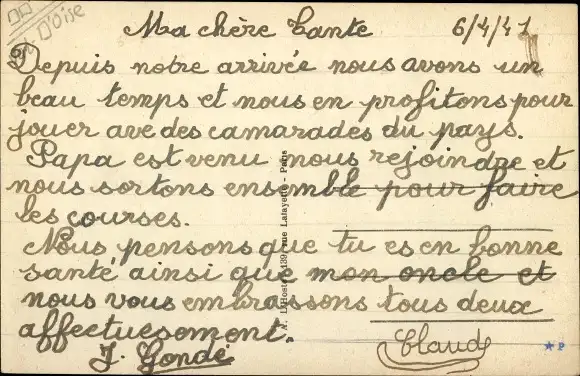 D'Oise
Ma chère Tante 6/4/41
Depuis notre arrivée nous avons un
beau temps et nous en profitons pour
jouer ave des camarades du pays.
Papa est venu nous rejoindre et
nous sortons ensemble pour faire
les courses.
Nous pensons que tu es en bonne
santé ainsi que mon oncle et
nous vous embrassons tous deux
affectuesement.
J. Gondé
Claud
A. L'Hoste, 139, rue Lafayette - Paris
P